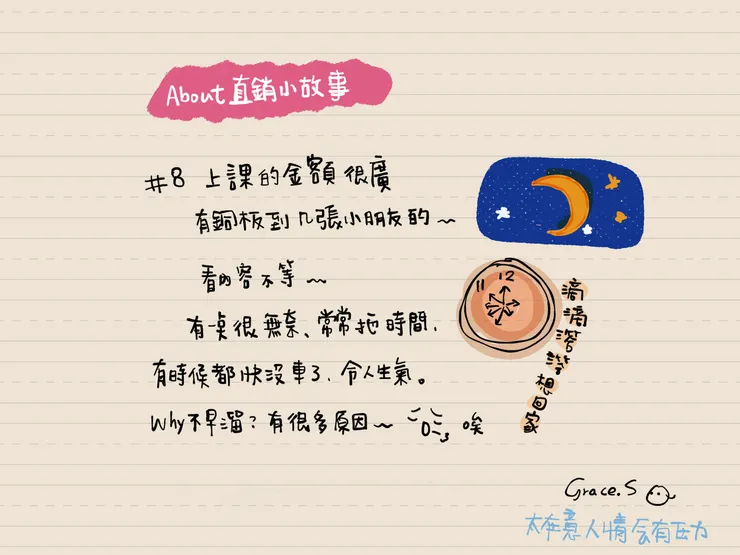 About直銷小故事
#8 上課的金額很廣
有銅板到几張小朋友的~
看內容不等~
有桌很無奈、常常拖時間,
有時候都快沒車了,令人生氣。
Why不早溜?有很多原因~ 唉
11 12
滴滴答答想回家
Grace.S
太在意人情會有壓力